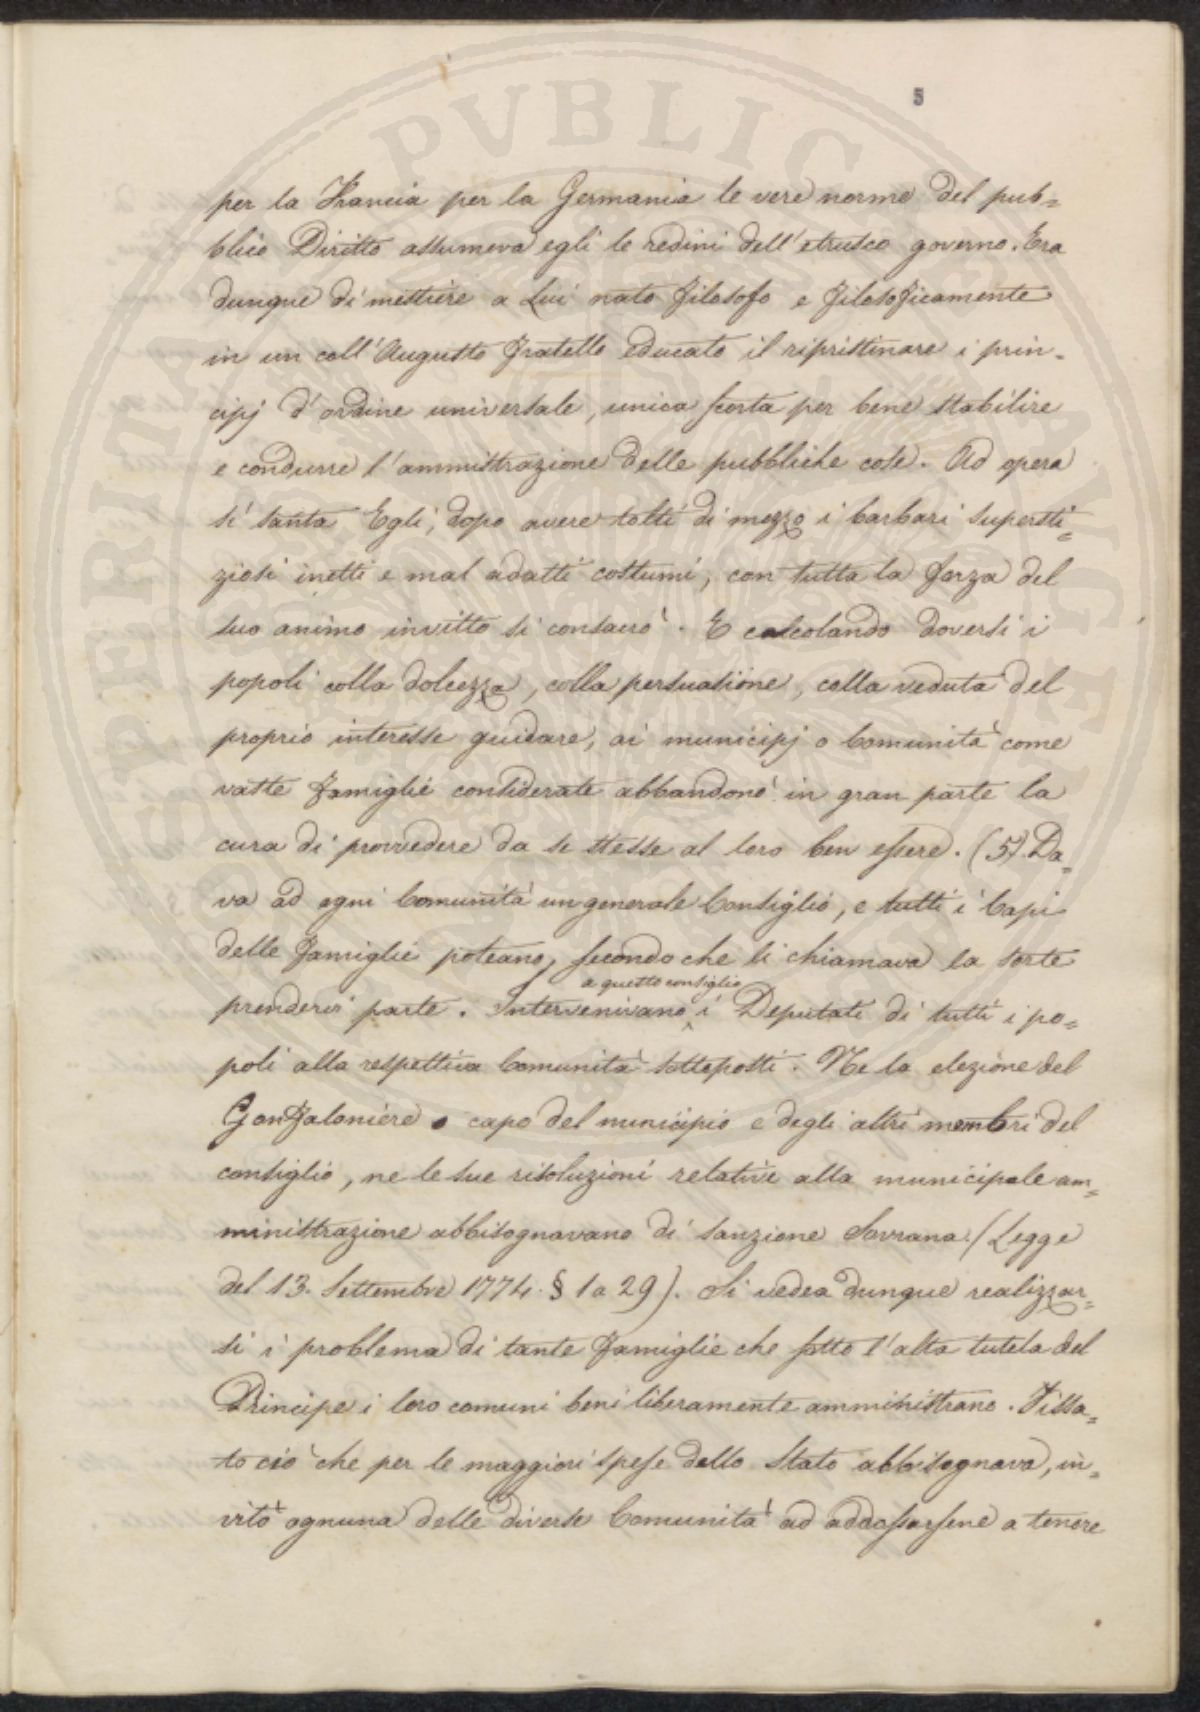 5
per la Francia per la Germania le vere norme del pub=
blico Diritto assumeva egli le redini dell'etrusco governo. Era
dunque di mestiere a Lui nato filosofo e filosoficamente
in un coll'Augusto fratello educato il ripristinare i prin-
cipj d'ordine universale, unica scorta per bene stabilire
e condurre l'amministrazione delle pubbliche cose. Ad opera
sì tanta Egli, dopo avere tolti di mezzo i barbari supersti=
ziosi inetti e mal adatti costumi, con tutta la forza del
suo animo invitto si consacrò. E calcolando doversi i
popoli colla dolcezza, colla persuasione, colla veduta del
proprio interesse guidare, ai municipj o Comunità come
vaste famiglie considerate abbandonò in gran parte la
cura di provvedere da se stesse al loro ben essere. (5) Da=
va ad ogni Comunità un generale Consiglio, e tutti i Capi
delle famiglie poteano, secondo che li chiamava la sorte
prendervi parte. Intervenivano a questo consiglio i Deputati di tutti i po=
poli alla respettiva Comunità sottoposti. Ne la elezione del
Gonfaloniere o capo del municipio e degli altri membri del
consiglio, ne le sue risoluzioni relative alla municipale am=
ministrazione abbisognavano di sanzione Sovrana (Legge
del 13. Settembre 1774. § 1 a 29). Si vedea dunque realizzar=
si i problema di tante famiglie che sotto l'alta tutela del
Principe i loro comuni beni liberamente amministrano. Fissa=
to ciò che per le maggiori spese dello Stato abbisognava, in=
vitò ognuna delle diverse Comunità ad addossarsene a tenore